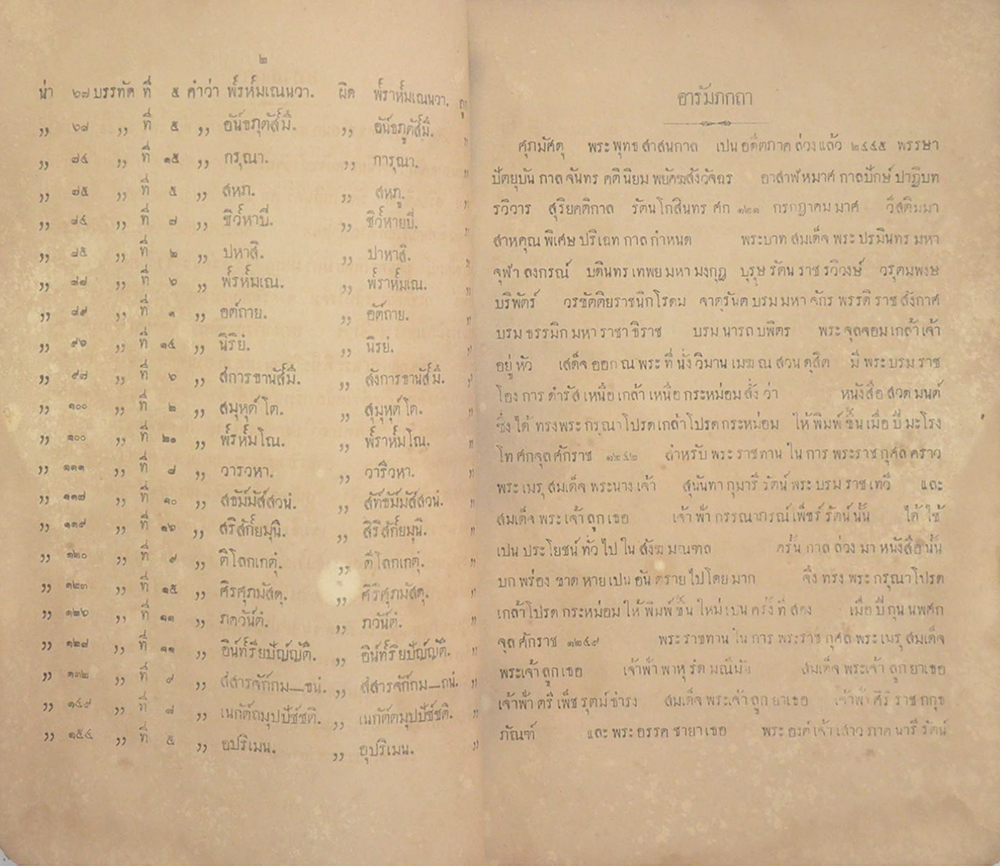 ๒
น่า ๖๗ บรรทัด ที่ ๕ คำว่า พ๎รห๎มเณนวา. ผิด พ๎ราห๎มเณนวา.
,, ๖๗ ,, ที่ ๕ ,, ,,
,, ๘๔ ,, ที่ ๑๕ ,, กรุณา. ,, การุณา.
,, ๘๕ ,, ที่ ๕ ,, สหภ. ,, สหภู.
,, ๘๕ ,, ที่ ๗ ,, ชิว๎หาบี่. ,, ชิว๎หายบี่.
,, ๘๕ ,, ที่ ๒ ,, ปหาสิ. ,, ปาหาสิ.
,, ๘๘ ,, ที่ ๖ ,, พ๎รห๎มเณ. ,, พ๎ราห๎มเณ.
,, ๘๙ ,, ที่ ๑ ,, อต๎ถาย. ,, อัต๎ถาย.
,, ๙๖ ,, ที่ ๑๔ ,, นิริย์. ,, นิรย์.
,, ๙๘ ,, ที่ ๖ ,, ,,
,, ๑๐๐ ,, ที่ ๒ ,, สมุหุต๎โต. ,, สุมุหุต๎โต.
,, ๑๐๐ ,, ที่ ๒๑ ,, พ๎รห๎มโณ. ,, พ๎ราห๎มโณ.
,, ๑๑๑ ,, ที่ ๘ ,, วารวหา. ,, วาริวหา.
,, ๑๑๗ ,, ที่ ๑๐ ,, สธัม๎มัส๎สวนํ. ,, สัท๎ธัม๎มัส๎สวนํ.
,, ๑๑๙ ,, ที่ ๑๖ ,, สริสัก๎ยมุนิ. ,, สิริสัก๎ยมุนิ.
,, ๑๒๐ ,, ที่ ๙ ,, ติโลกเกตุํ. ,, ติโลกเกตุํ.
,, ๑๒๓ ,, ที่ ๑๕ ,, ศิรศุภมัสดุ. ,, ศิริศุภมัสดุ.
,, ๑๒๖ ,, ที่ ๑๑ ,, ภควันตํ. ,, ภวันตํ.
,, ๑๒๘ ,, ที่ ๑๑ ,, อิน๎ท๎ริยปัญ๎ญัติ. ,, อิน๎ท๎ริยปัญ๎ญัติ.
,, ๑๓๒ ,, ที่ ๙ ,, ,,
,, ๑๔๙ ,, ที่ ๘ ,, ,,
,, ๑๕๔ ,, ที่ ๕ ,, อปริเมน. ,, อุปริเมน.
อารัมภกถา
ศุภมัศดุ พระพุทธสาสนกาล เปนอดีตภาคล่วงแล้ว ๒๔๔๕ พรรษา
ปัตยุบันกาล จันทรคตินิยม พยัคฆสังวัจฉร อาสาฬหมาศ กาลปักษ์ ปาฏิบท
รวิวาร สุริยคติกาล รัตนโกสินทรศก ๑๒๑ กรกฎาคมมาศ วีสติมมา
สาหคุณพิเศษ ปริเฉทกาลกำหนด พระบาทสมเด็จพระปรมินทรมหา
จุฬาลงกรณ์ บดินทรเทพยมหามงกุฎ บุรุษรัตนราชรวิวงษ์ วรุตมพงษ
บริพัตร์ วรขัตติยราชนิกโรดม จาตุรันตบรมมหาจักรพรรดิราชสังกาศ
บรมธรรมิกมหาราชาธิราช บรมนารถบพิตร พระจุลจอมเกล้าเจ้า
อยู่หัว เสด็จออก ณ พระที่นั่งวิมานเมฆ ณ สวนดุสิต มีพระบรมราช
โองการดำรัสเหนือเกล้าเหนือกระหม่อมสั่งว่า หนังสือสวดมนต์
ซึ่งได้ทรงพระกรุณาโปรดเกล้าโปรดกระหม่อม ให้พิมพ์ขึ้นเมื่อปีมะโรง
โทศกจุลศักราช ๑๒๔๒ สำหรับพระราชทานในการพระราชกุศลคราว
พระเมรุสมเด็จพระนางเจ้า สุนันทากุมารีรัตน์พระบรมราชเทวี และ
สมเด็จพระเจ้าลูกเธอ เจ้าฟ้ากรรณาภรณ์เพ็ชร์รัตน์นั้น ได้ใช้
เปนประโยชน์ทั่วไปในสังฆมณฑล ครั้นกาลล่วงมาหนังสือนั้น
บกพร่องขาดหายเปนอันตรายไปโดยมาก จึงทรงพระกรุณาโปรด
เกล้าโปรดกระหม่อมให้พิมพ์ขึ้นใหม่เปนครั้งที่สอง เมื่อปีกุนนพศก
จุลศักราช ๑๒๔๙ พระราชทานในการพระราชกุศลพระเมรุสมเด็จ
พระเจ้าลูกเธอ เจ้าฟ้าพาหุรัตมณีมัย สมเด็จพระเจ้าลูกยาเธอ
เจ้าฟ้าตรีเพ็ชรุตม์ธำรง สมเด็จพระเจ้าลูกยาเธอ เจ้าฟ้าศิริราชกกุธ
ภัณฑ์ และพระอรรคชายาเธอ พระองค์เจ้าเสาวภาคนารีรัตน์